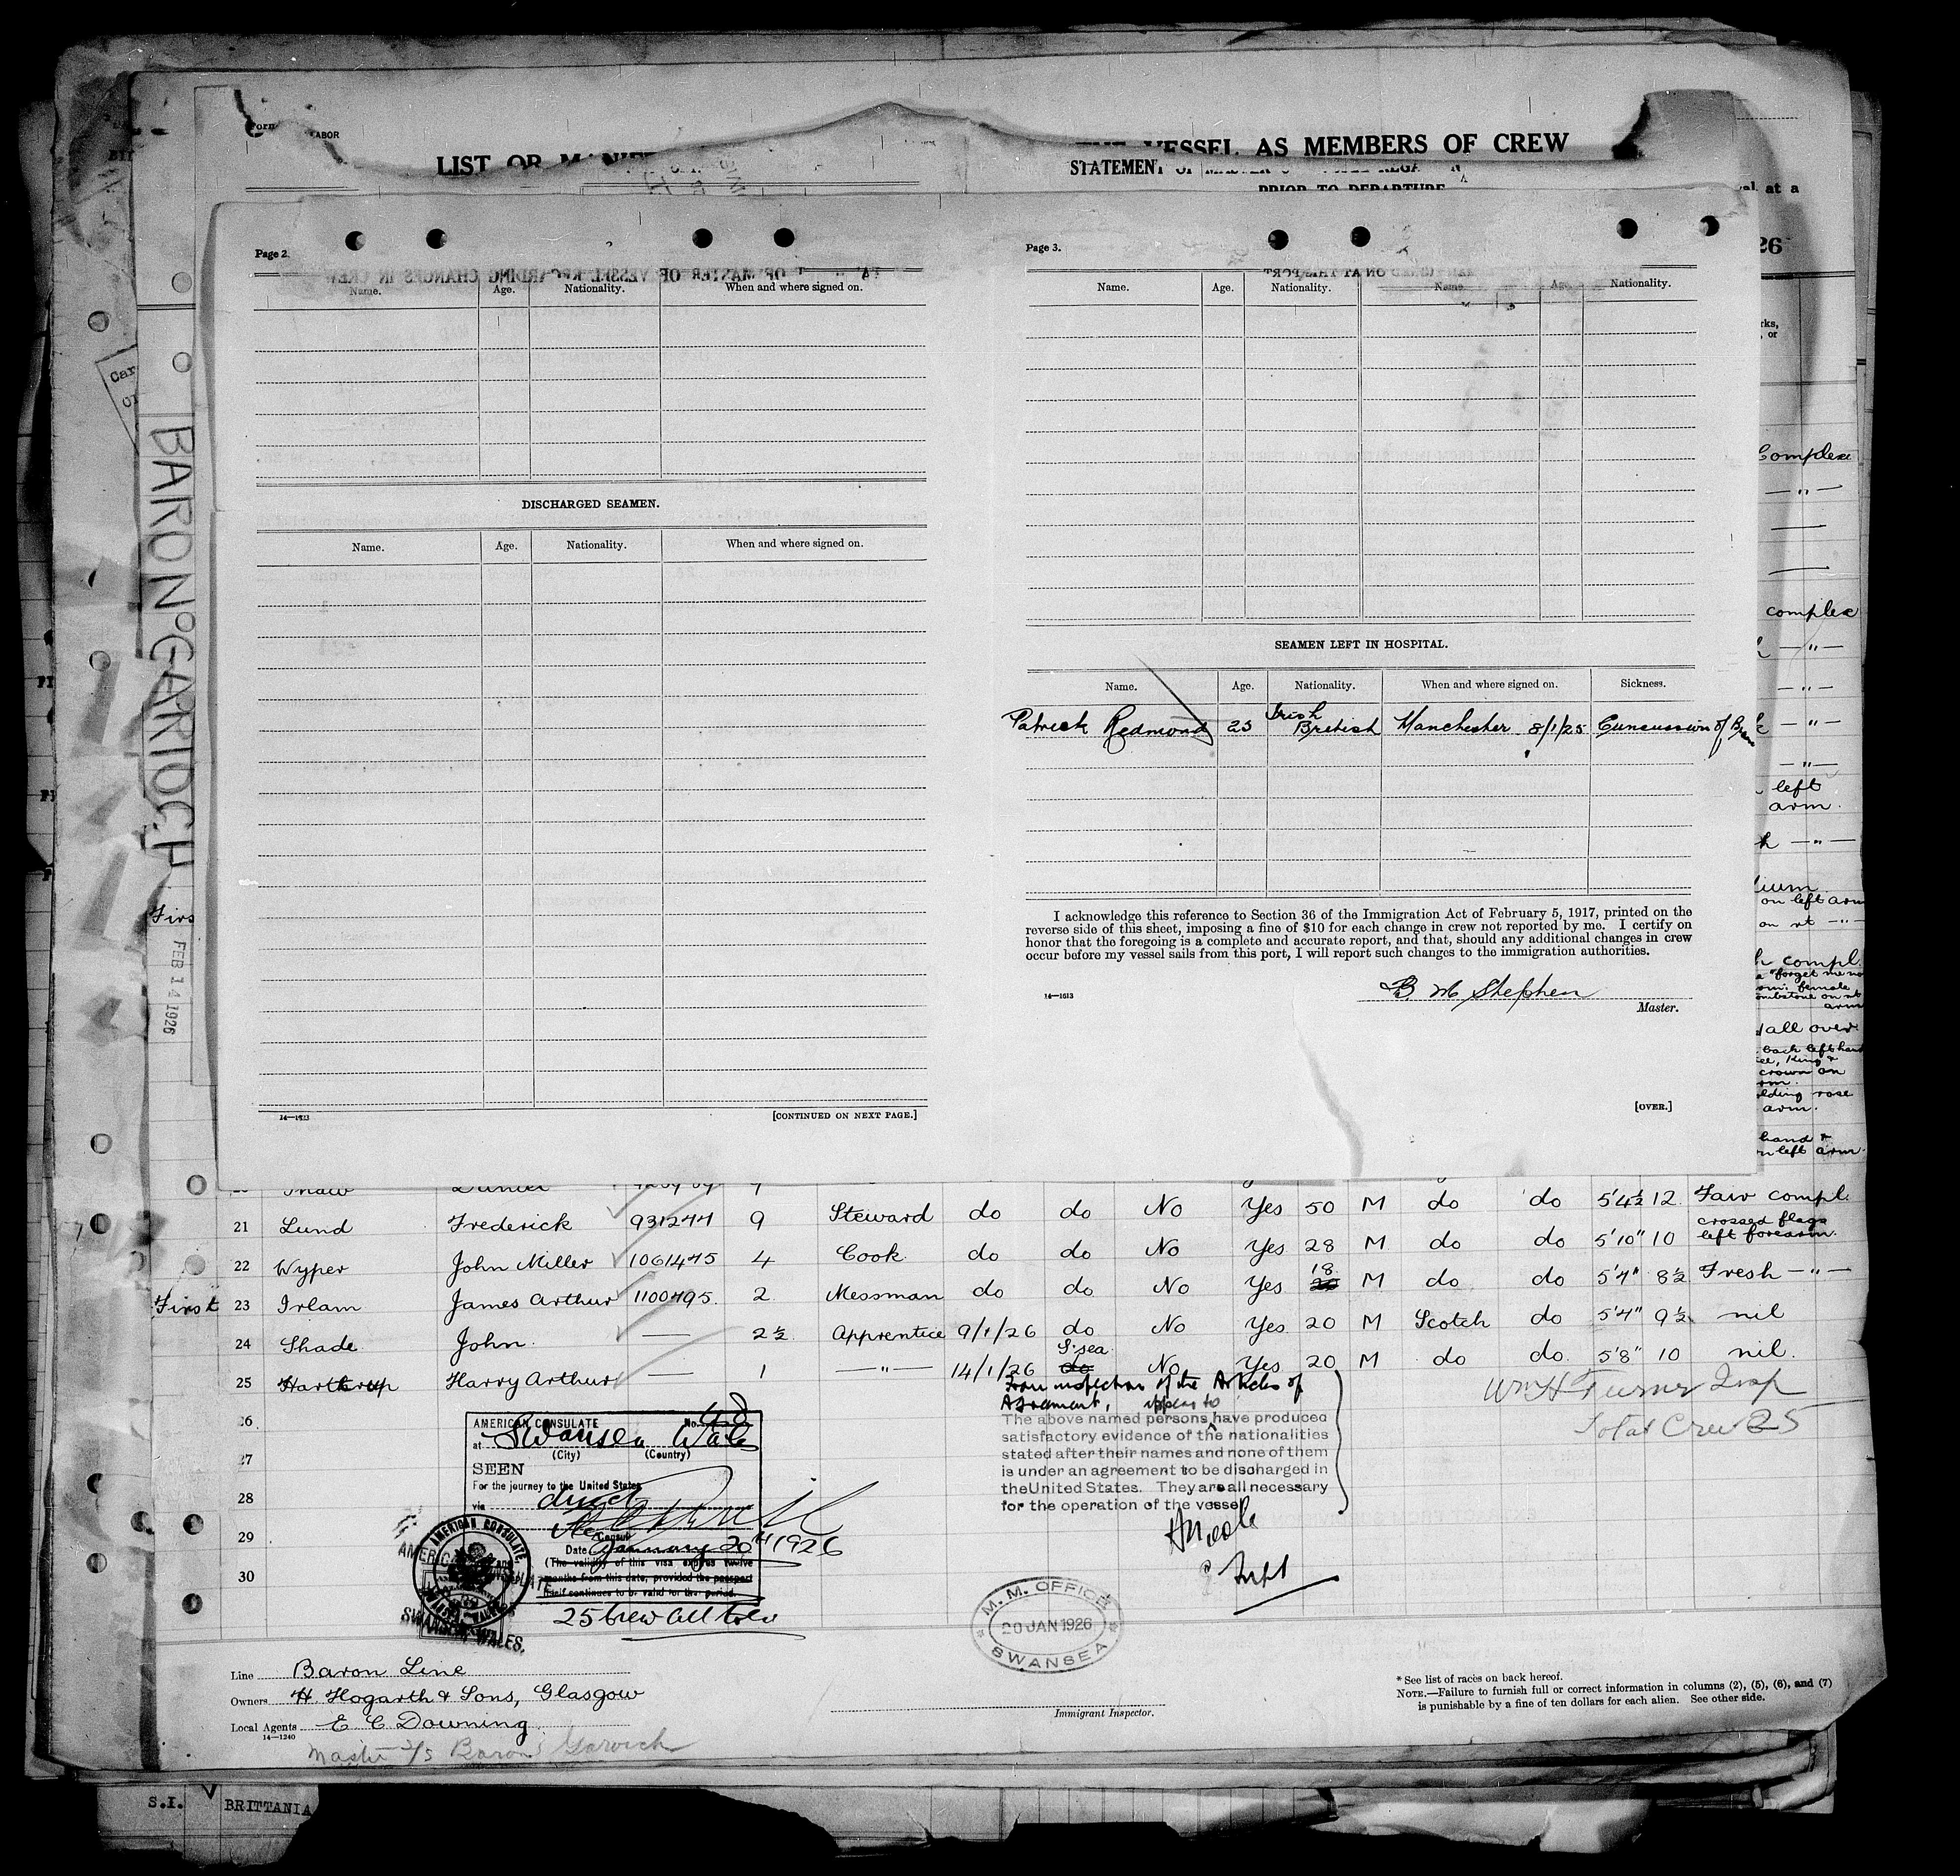 LABOR
LIST OR
VESSEL AS MEMBERS OF CREW
STATEMENT OF
PRIOR TO DEPARTURE
al at a
26
Page 2.
Name. Age. Nationality. When and where signed on.
DISCHARGED SEAMEN.
Name. Age. Nationality. When and where signed on.
14—1613
[CONTINUED ON NEXT PAGE.]
Page 3.
Name. Age. Nationality. Name. Age. Nationality.
SEAMEN LEFT IN HOSPITAL.
Name. Age. Nationality. When and where signed on. Sickness.
Irish
Patrick Redmond 23 British Manchester 8/1/25 Cuncussion of Brain
I acknowledge this reference to Section 36 of the Immigration Act of February 5, 1917, printed on the
reverse side of this sheet, imposing a fine of $10 for each change in crew not reported by me. I certify on
honor that the foregoing is a complete and accurate report, and that, should any additional changes in crew
occur before my vessel sails from this port, I will report such changes to the immigration authorities.
14—1613
B M Stephen
Master.
[OVER.]
BARON GARIOCH
FEB 14 1926
Complex
complex
left
arm.
on left arm
compl.
forget me no
female
tombstone on rt
arm
all over
back left hand
King &
crown on
rose
arm.
hand &
left arm.
Fair compl.
21 Lund Frederick 931244 9 Steward do do No Yes 50 M do do 5'4½ 12
crossed flags
left forearm.
22 Wyper John Miller 1061475 4 Cook do do No Yes 28 M do do 5'10" 10
18
First 23 Irlam James Arthur 1100495 2 Messman do do No Yes M do do 5'4" 8½ Fresh —"—
24 Shade John — 2½ Apprentice 9/1/26 do No Yes 20 M Scotch do 5'4" 9½ nil
S'sea
25 Hartrup Harry Arthur — 1 —"— 14/1/26 do No Yes 20 M do do 5'8" 10 nil.
From inspection of the Articles of
Agreement, appear to
The above named persons have produced
satisfactory evidence of the nationalities
stated after their names and none of them
is under an agreement to be discharged in
the United States. They are all necessary
for the operation of the vessel
Wm H Turner Insp
Total Crew 25
26
27
28
29
30
AMERICAN CONSULATE No. 48
at Swansea Wales
(City) (Country)
SEEN
For the journey to the United States
via direct
Consul
Date January 20th 1926
(The validity of this visa expires twelve
months from this date, provided the passport
itself continues to be valid for the period.
25 Crew all told
AMERICAN CONSULATE
SWANSEA, WALES.
Supt
M. M. OFFICE
20 JAN 1926
SWANSEA
Line Baron Line
Owners H. Hogarth & Sons, Glasgow
Local Agents E C Downing
14—1240
Master S/S Baron Garioch
Immigrant Inspector.
* See list of races on back hereof.
NOTE.—Failure to furnish full or correct information in columns (2), (5), (6), and (7)
is punishable by a fine of ten dollars for each alien. See other side.
S.I. BRITTANIA